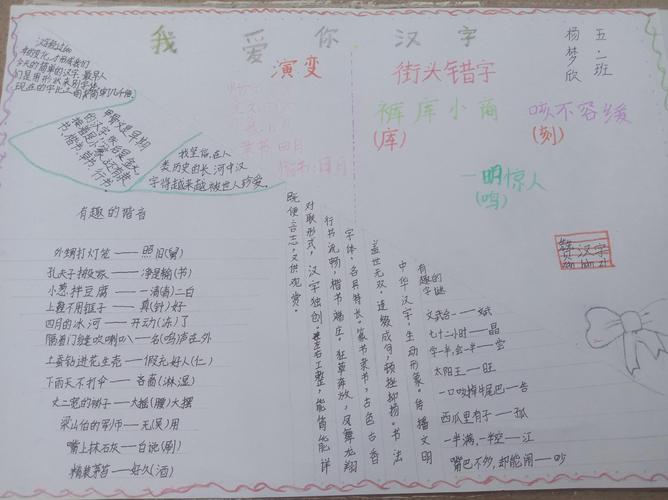 我爱你汉字
五.二班
杨梦欣
演变
街头错字
裤库小商
(库)
咳不容缓
(刻)
一明惊人
(鸣)
汉字经过了
今天的简单的汉字,最早人
们是用形状来别字体
甲骨文是早期
的汉字,后
书,楷书,草书,行书
我坚信,在人
类历史的长河中汉
字将越来越被世人珍爱。
隶书:四月
楷书:日月
有趣的谐音
外甥打灯笼——照旧(舅)
孔夫子搬家——净是输(书)
小葱拌豆腐——清(青)二白
上鞋不用锥子——真(针)好
四月的冰河——开动(冻)了
隔着门缝吹喇叭——名(鸣)声在外
土蚕钻进花生壳——假充好人(仁)
下雨天不打伞——吝啬(淋湿)
丈二宽的裤子——大摇(腰)大摆
梁山伯的军师——无(吴)用
嘴上抹石灰——白说(刷)
精装茅台——好久(酒)
有趣的
字谜
中华汉字,生动形象。传播文明
盖世无双。连缀成句,顿挫抑扬。书法
字体,各具特长。篆书隶书,古色古香
行书流畅,楷书端庄。狂草奔放,凤舞龙翔
对联形式,汉字独创。左右工整,能简能详
既便言志,又供观赏。
文武合一——斌
七十二小时——晶
字一半,会一半——宝
太阳王——旺
一口咬掉牛尾巴——告
西瓜里有子——孤
一半满,一半空——江
嘴巴不妙,却能闹——吵
赞汉字
zan han zi